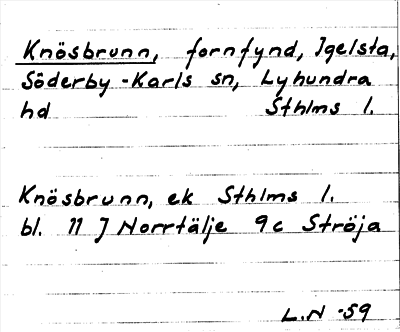 Knösbrunn, fornfynd, Igelsta,
Söderby-Karls sn, Lyhundra
hd Sthlms l.
Knösbrunn, ek Sthlms l.
bl. 11 J Norrtälje 9c Ströja
L.N -59